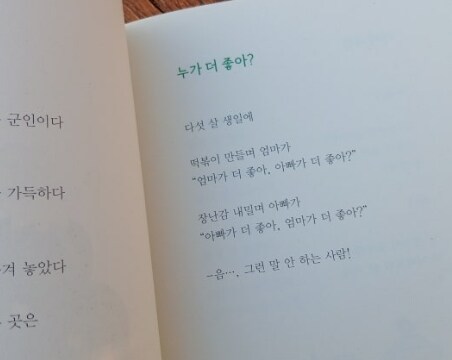 군인이다
가득하다
놓았다
곳은
누가 더 좋아?
다섯 살 생일에
떡볶이 만들며 엄마가
“엄마가 더 좋아, 아빠가 더 좋아?”
장난감 내밀며 아빠가
“아빠가 더 좋아, 엄마가 더 좋아?”
–음…, 그런 말 안 하는 사람!